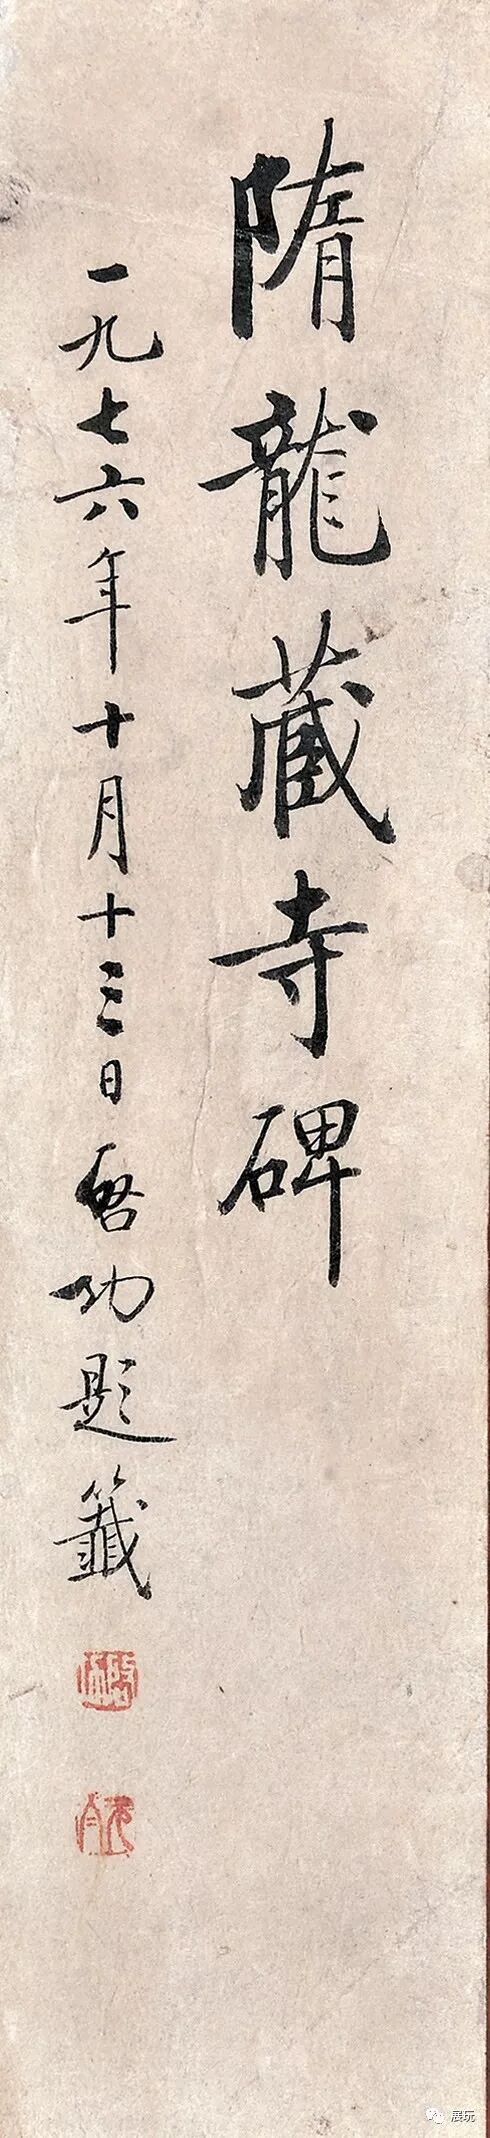 隋龍藏寺碑
一九七六年十月十三日啓功題籤
展玩